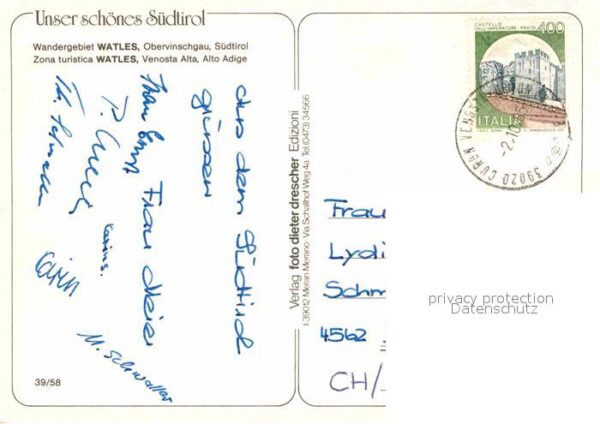 Unser schönes Südtirol
Wandergebiet WATLES, Obervinschgau, Südtirol
Zona turistica WATLES, Venosta Alta, Alto Adige
aus dem Südtirol
grüssen
Frau Meier
Karins.
Carin
M. Schwaller
39/58
Verlag foto dieter drescher Edizioni
I-39012 Meran Merano · Via Schallhof Weg 4a · Tel. (0473) 34566
CASTELLO
DELL'IMPERATORE PRATO
400
ITALIA
39020 CURON VENOSTA
-2.10.
Frau
Lydi
Schm
4562
CH/
privacy protection
Datenschutz